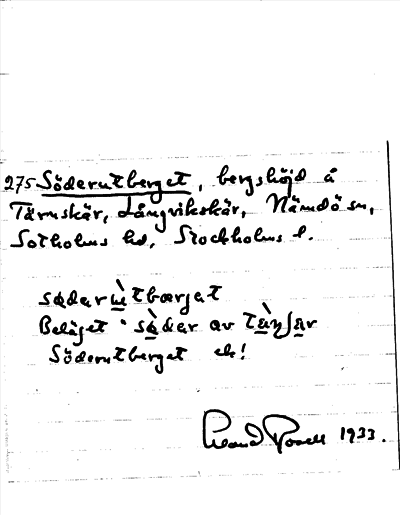 275 Söderutberget, bergshöjd å
Tärnskär, Långvikskär, Nämdö sn,
Sotholms hd, Stockholms l.
sǝdarùtbærgǝt
Beläget sǝ̀dǝr av
Söderutberget eh!
1933.